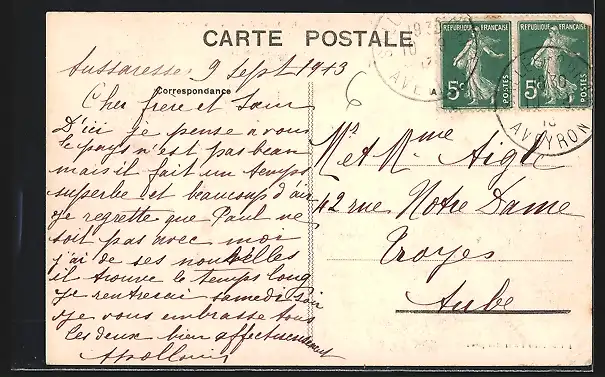 CARTE POSTALE
9 sept 1913
Correspondance
Cher frere et Sœur
D'ici je pense a vous
le pays n'est pas beau
mais il fait un temps
superbe et beaucoup d'air
je regrette que Paul ne
soit pas avec moi
j'ai de ses nouvelles
il trouve le temps long
je rentrerai samedi soir
je vous embrasse tous
les deux bien affectueusement
RÉPUBLIQUE FRANÇAISE
5c
POSTES
RÉPUBLIQUE FRANÇAISE
5c
POSTES
AVEYRON
Mr et Mme Aigle
42 rue Notre Dame
Troyes
Aube